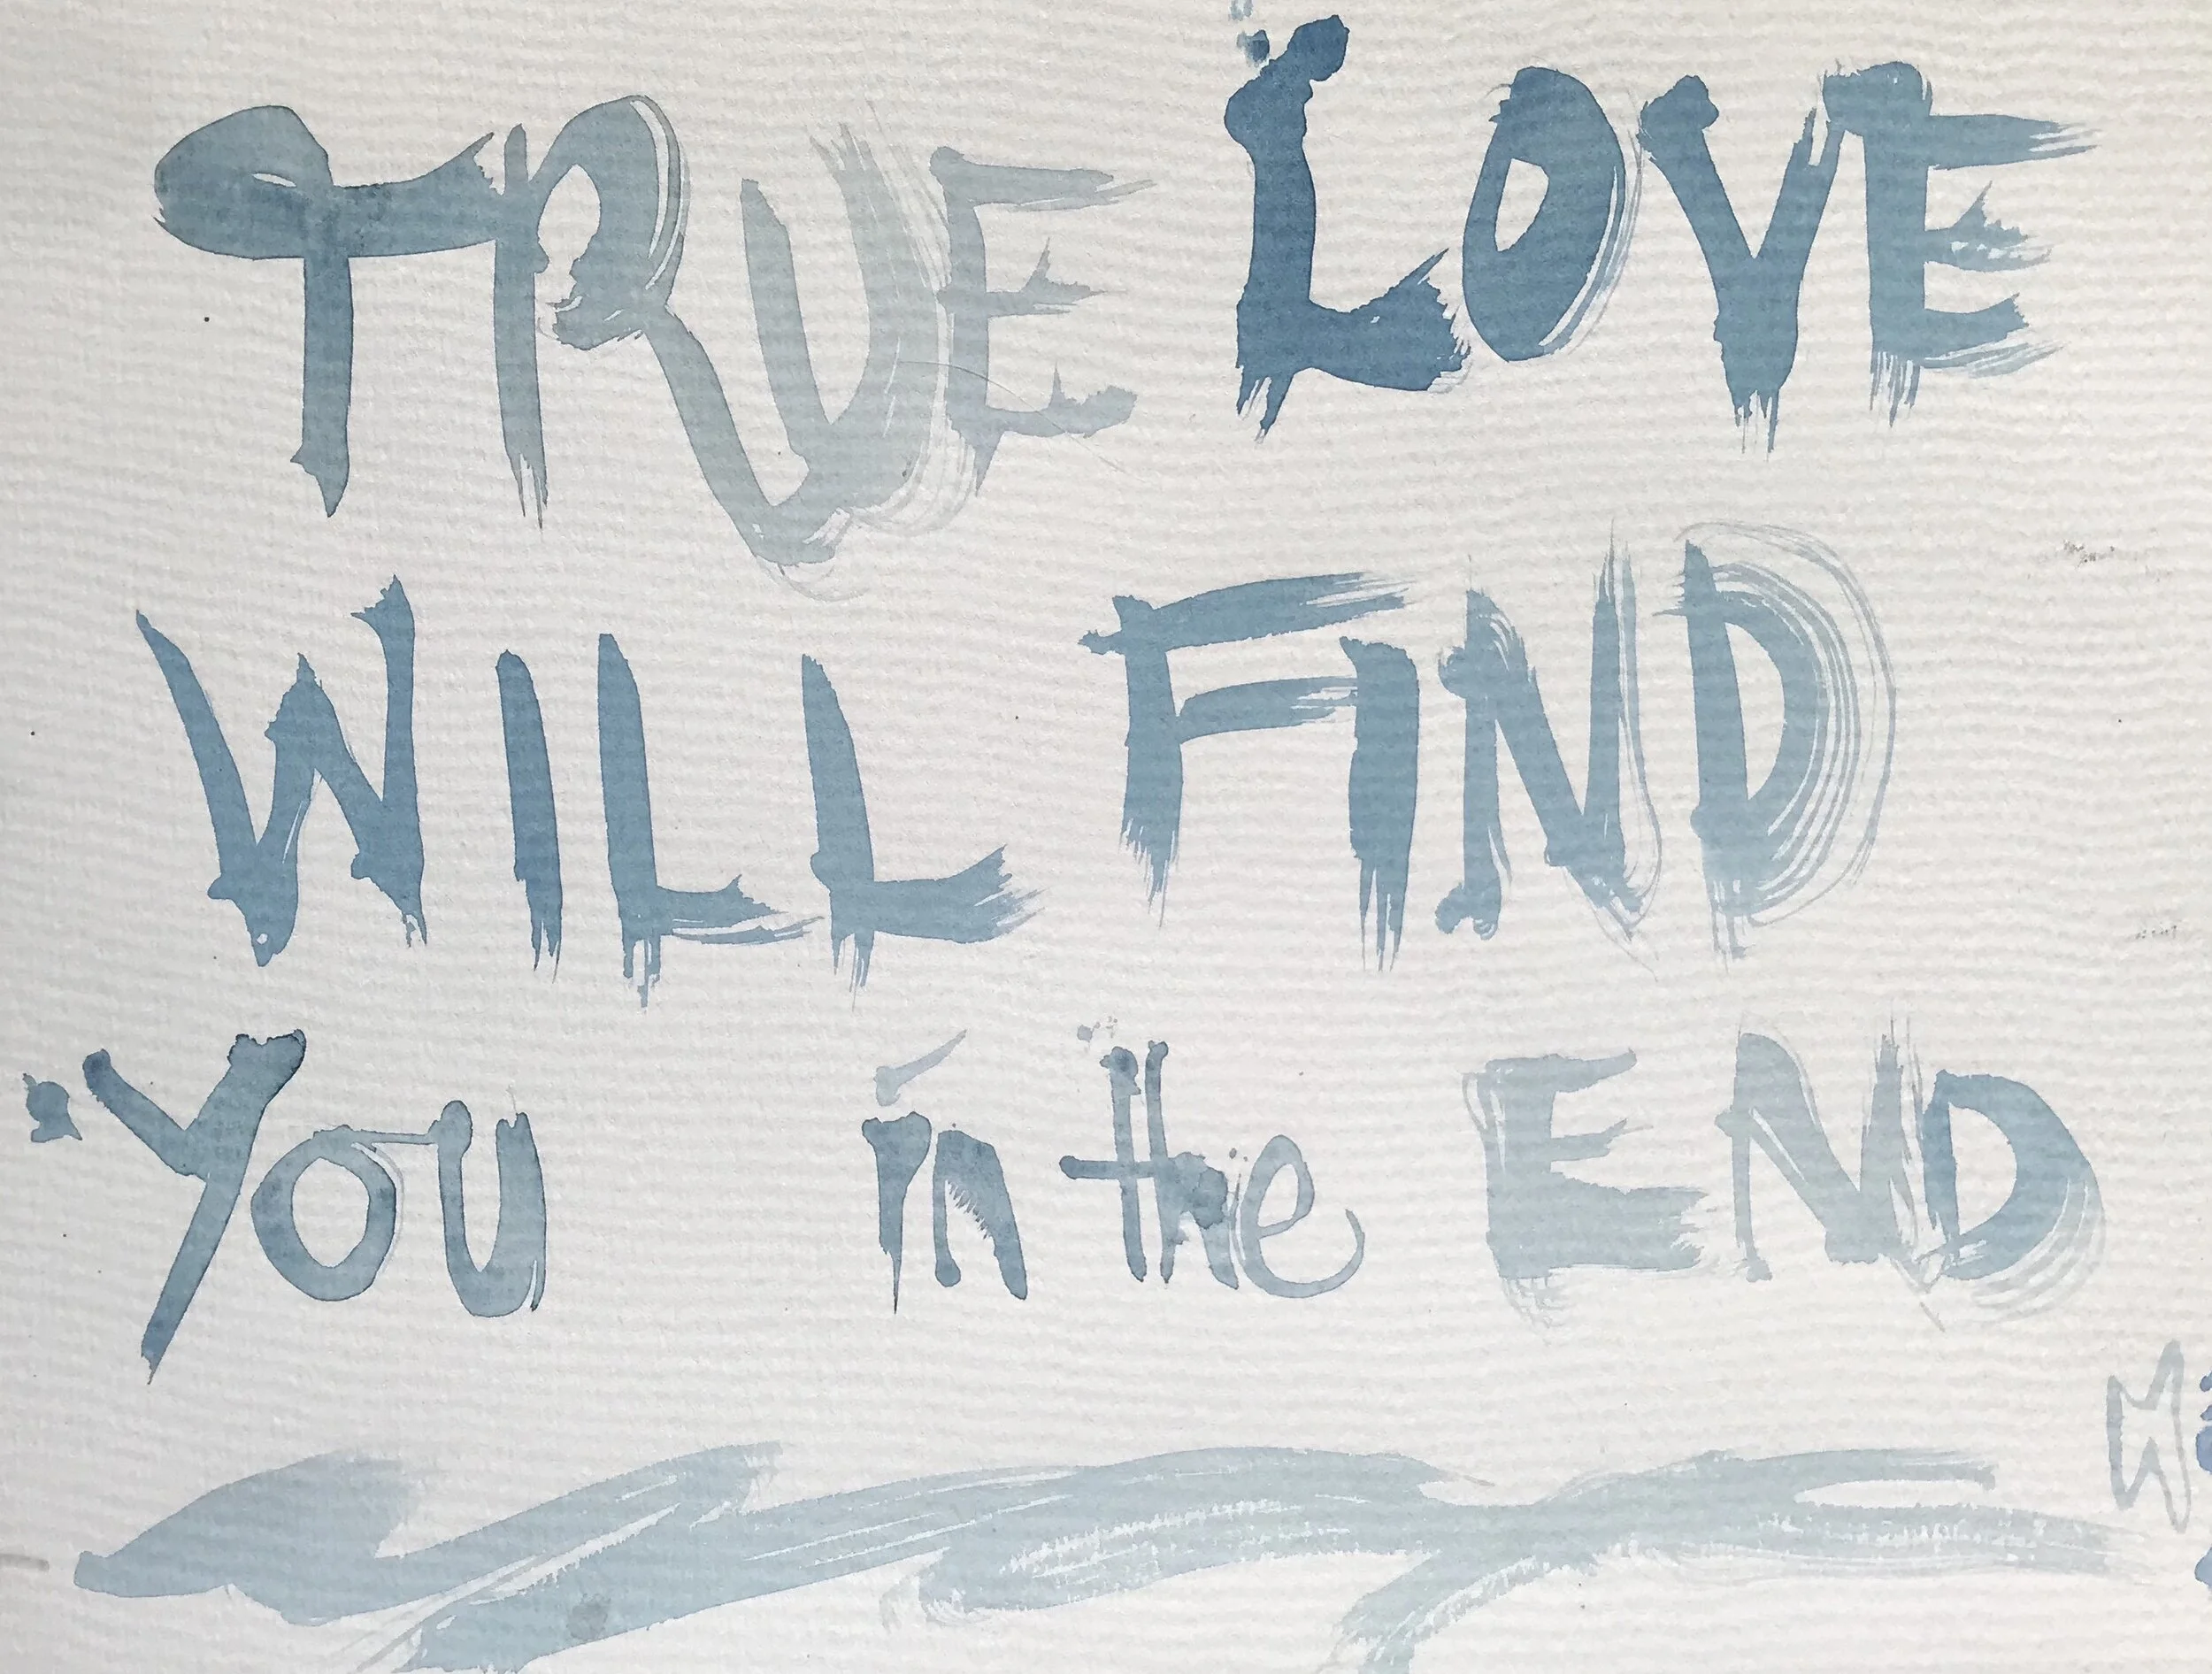 TRUE LOVE
WILL FIND
YOU in the END